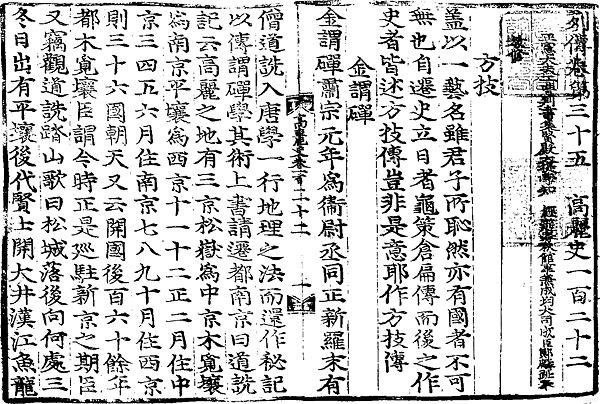 列傳卷第三十五 高麗史一百二十二
正憲大夫工曹判書集賢殿大提學知 經筵春秋館事兼成均大司成臣鄭麟趾奉
教修
方技
蓋以一藝名雖君子所恥然亦有國者不可
無也自遷史立日者龜策倉扁傳而後之作
史者皆述方技傳豈非是意耶作方技傳
金謂磾
金謂磾肅宗元年爲衛尉丞同正新羅末有
高麗史卷一百二十二 一
僧道詵入唐學一行地理之法而還作秘記
以傳謂磾學其術上書請遷都南京曰道詵
記云高麗之地有三京松嶽爲中京木覓壤
爲南京平壤爲西京十一十二正二月住中
京三四五六月住南京七八九十月住西京
則三十六國朝天又云開國後百六十餘年
都木覓壤臣謂今時正是廵駐新京之期臣
又竊觀道詵踏山歌曰松城落後向何處三
冬日出有平壤後代賢士開大井漢江魚龍